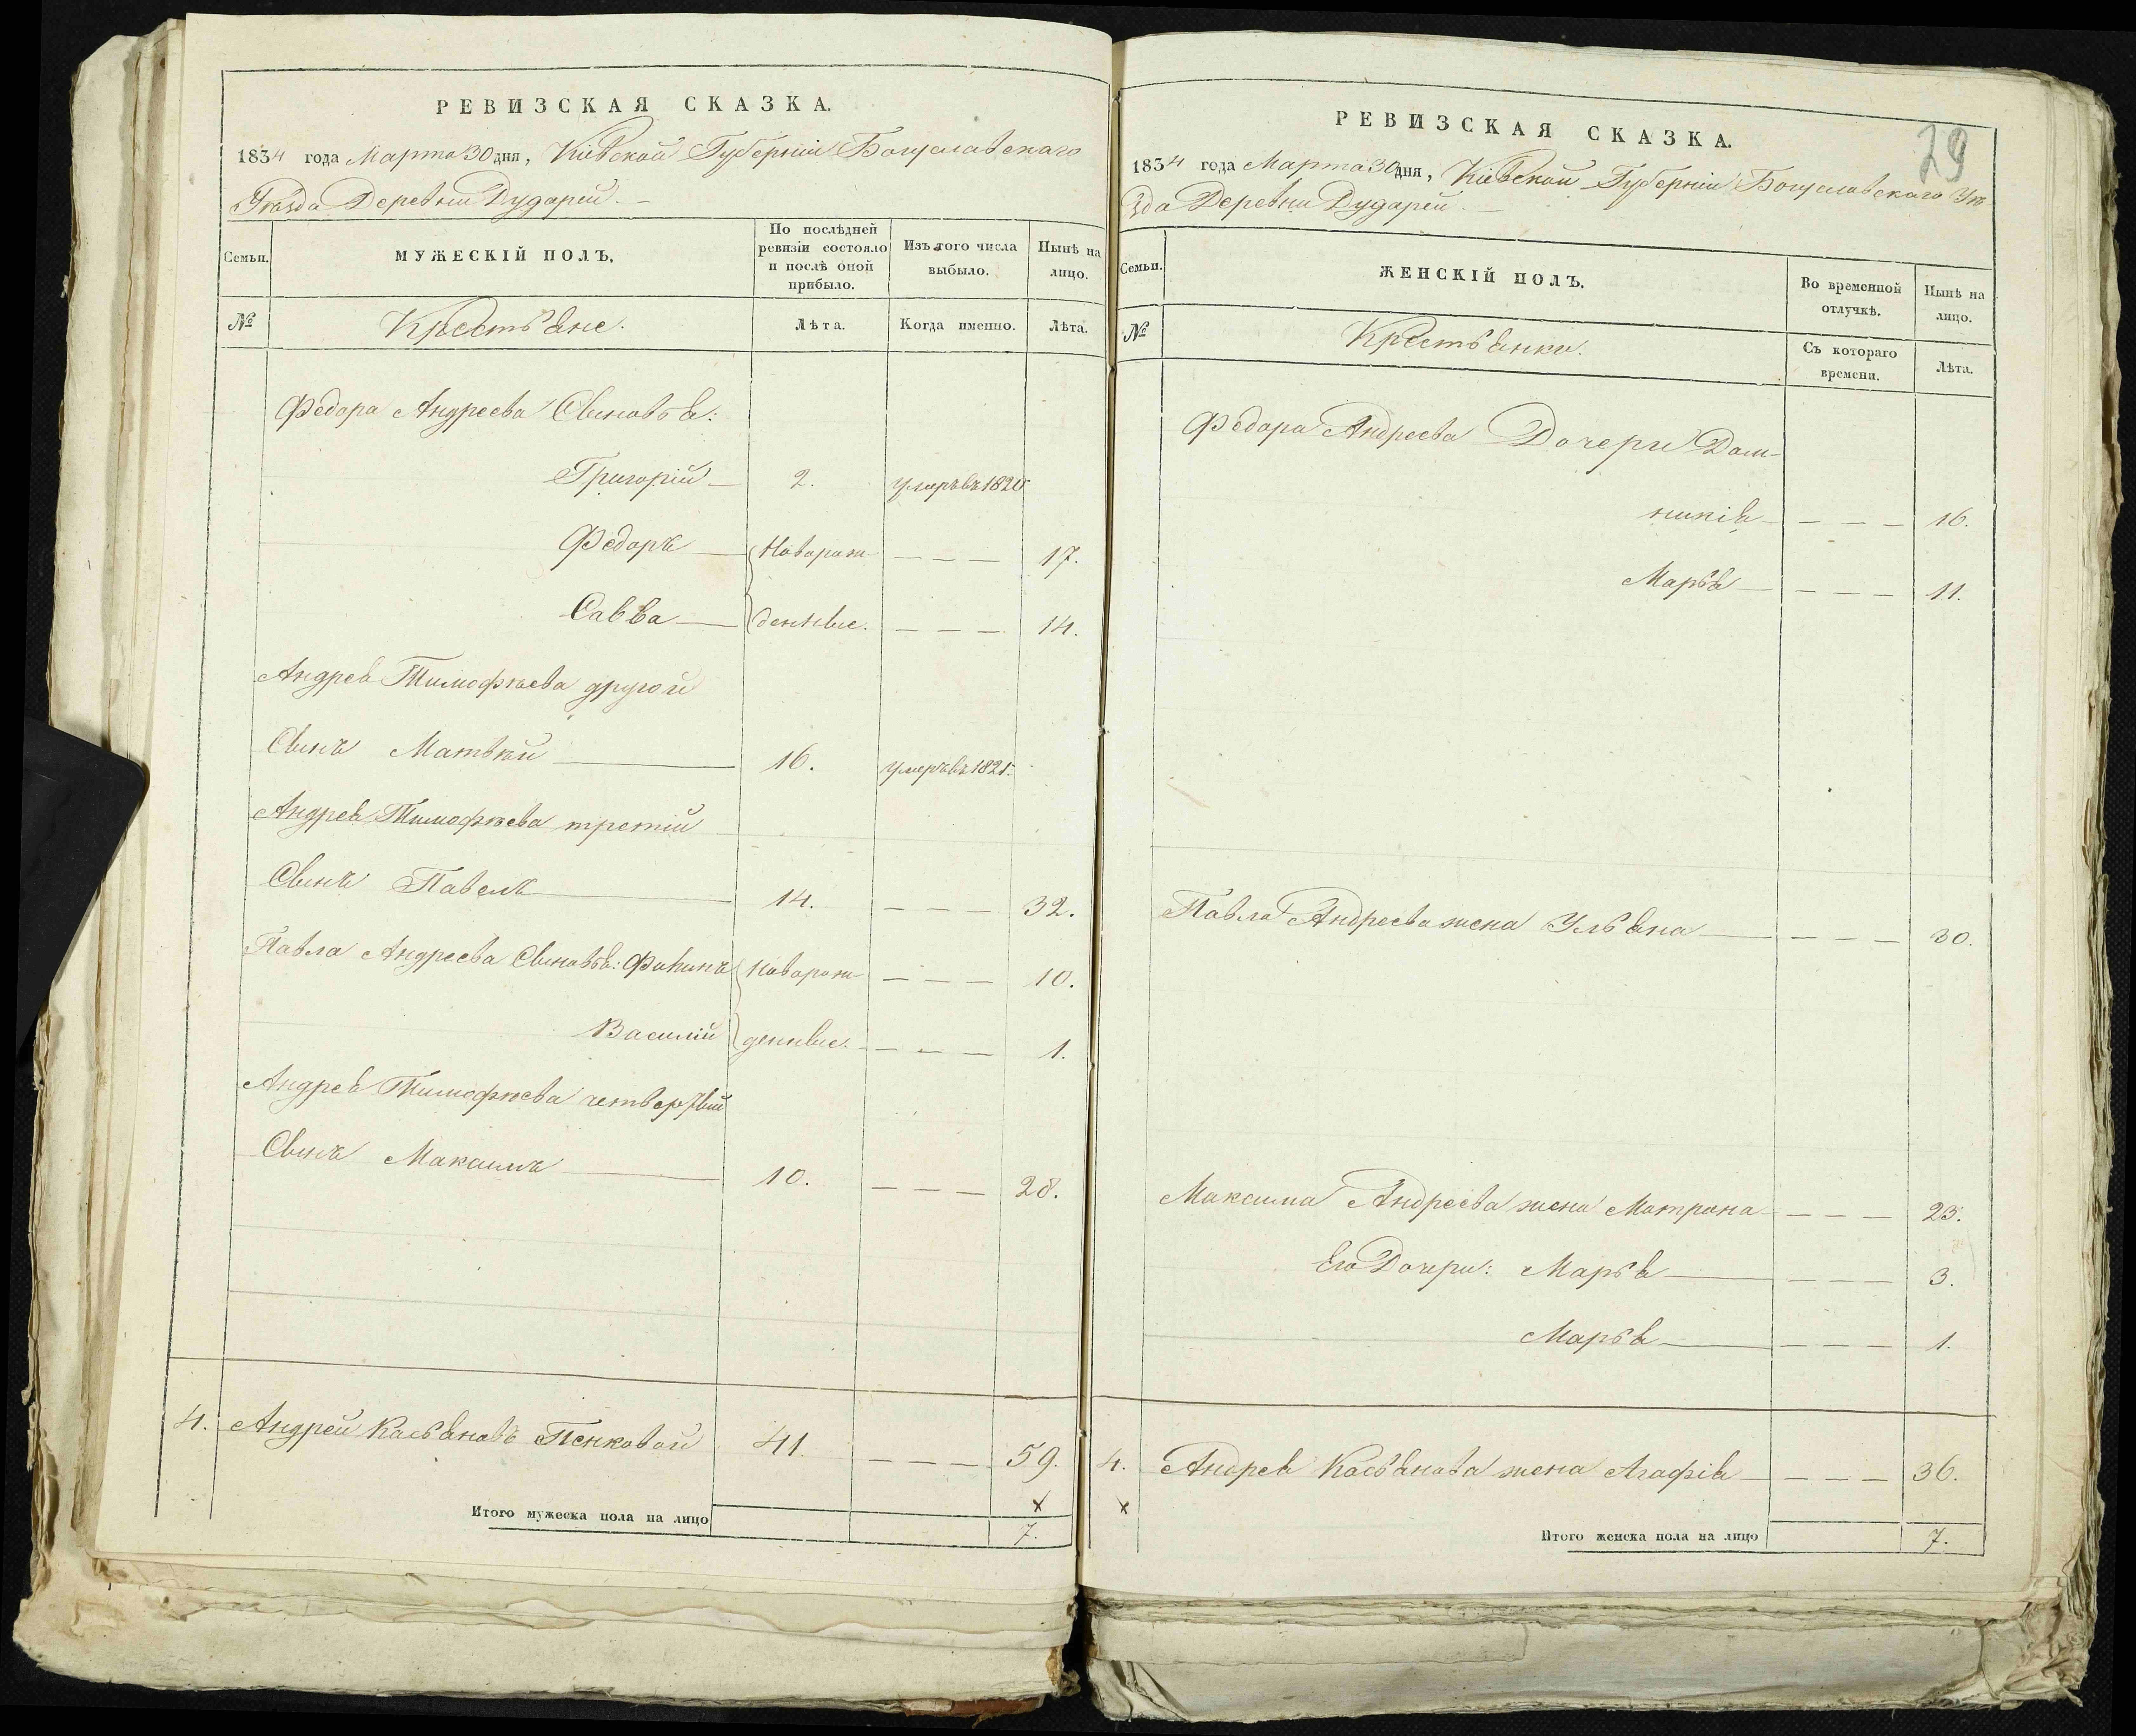 РЕВИЗСКАЯ СКАЗКА.
1834 года Марта 30 дня, Кіевской Губерніи Богуславскаго
Уѣзда Деревни Дударей.
Семьи.
МУЖЕСКІЙ ПОЛЪ.
По послѣдней
ревизіи состояло
и послѣ оной
прибыло.
Изъ того числа
выбыло.
Нынѣ на
лицо.
№
Крестьяне.
Лѣта.
Когда именно.
Лѣта.
Федора Андреева Сыновья:
Григорій 2. умеръ въ 1820
Федоръ Новорож- 17.
Савва денные. 14.
Андрея Тимофѣева другой
Сынъ Матвѣй 16. умеръ въ 1821.
Андрея Тимофѣева третій
Сынъ Павелъ 14. 32.
Павла Андреева Сыновья: Фокинъ новорож- 10.
Василій денные. 1.
Андрея Тимофѣева четвертый
Сынъ Максимъ 10. 28.
4. Андрей Касьяновъ Пенковой 41. 59.
Итого мужеска пола на лицо 7.
29
РЕВИЗСКАЯ СКАЗКА.
1834 года Марта 30 дня, Кіевской Губерніи Богуславскаго Уѣ
зда Деревни Дударей.
Семьи.
ЖЕНСКІЙ ПОЛЪ.
Во временной
отлучкѣ.
Нынѣ на
лицо.
№
Крестьянки.
Съ котораго
времени.
Лѣта.
Федора Андреева Дочери Дом-
никія 16.
Марья 11.
Павла Андреева жена Ульяна 30.
Максима Андреева жена Матрона 23.
Его Дочери: Марья 3.
Марья 1.
4. Андрея Касьянова жена Агафія 36.
Итого женска пола на лицо 7.